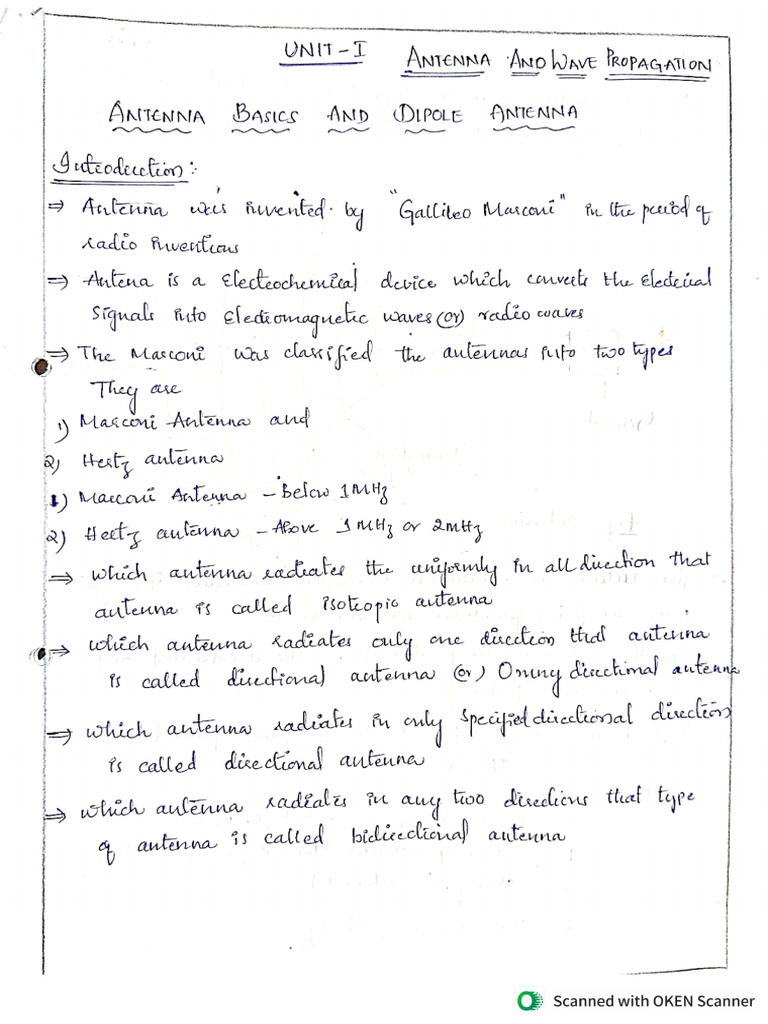 UNIT-I ANTENNA AND WAVE PROPAGATION
ANTENNA BASICS AND DIPOLE ANTENNA
Introduction:
⇒ Antenna was invented by "Gallileo Marconi" in the period of
radio inventions
⇒ Antena is a Electrochemical device which converts the Electrical
Signals into Electromagnetic waves (or) radio waves
⇒ The Marconi was classified the antennas into two types
They are
1) Marconi Antenna and
2) Hertz antenna
1) Marconi Antenna - Below 1MHz
2) Heetz antenna - Above 1MHz or 2MHz
⇒ which antenna radiates the uniformly in all direction that
antenna is called isotropic antenna
⇒ which antenna radiates only one direction that antenna
is called directional antenna (or) Ominy directional antenna
⇒ which antenna radiates in only specified directional direction
is called directional antenna
⇒ which antenna radiates in any two directions that type
of antenna is called bidirectional antenna
Scanned with OKEN Scanner